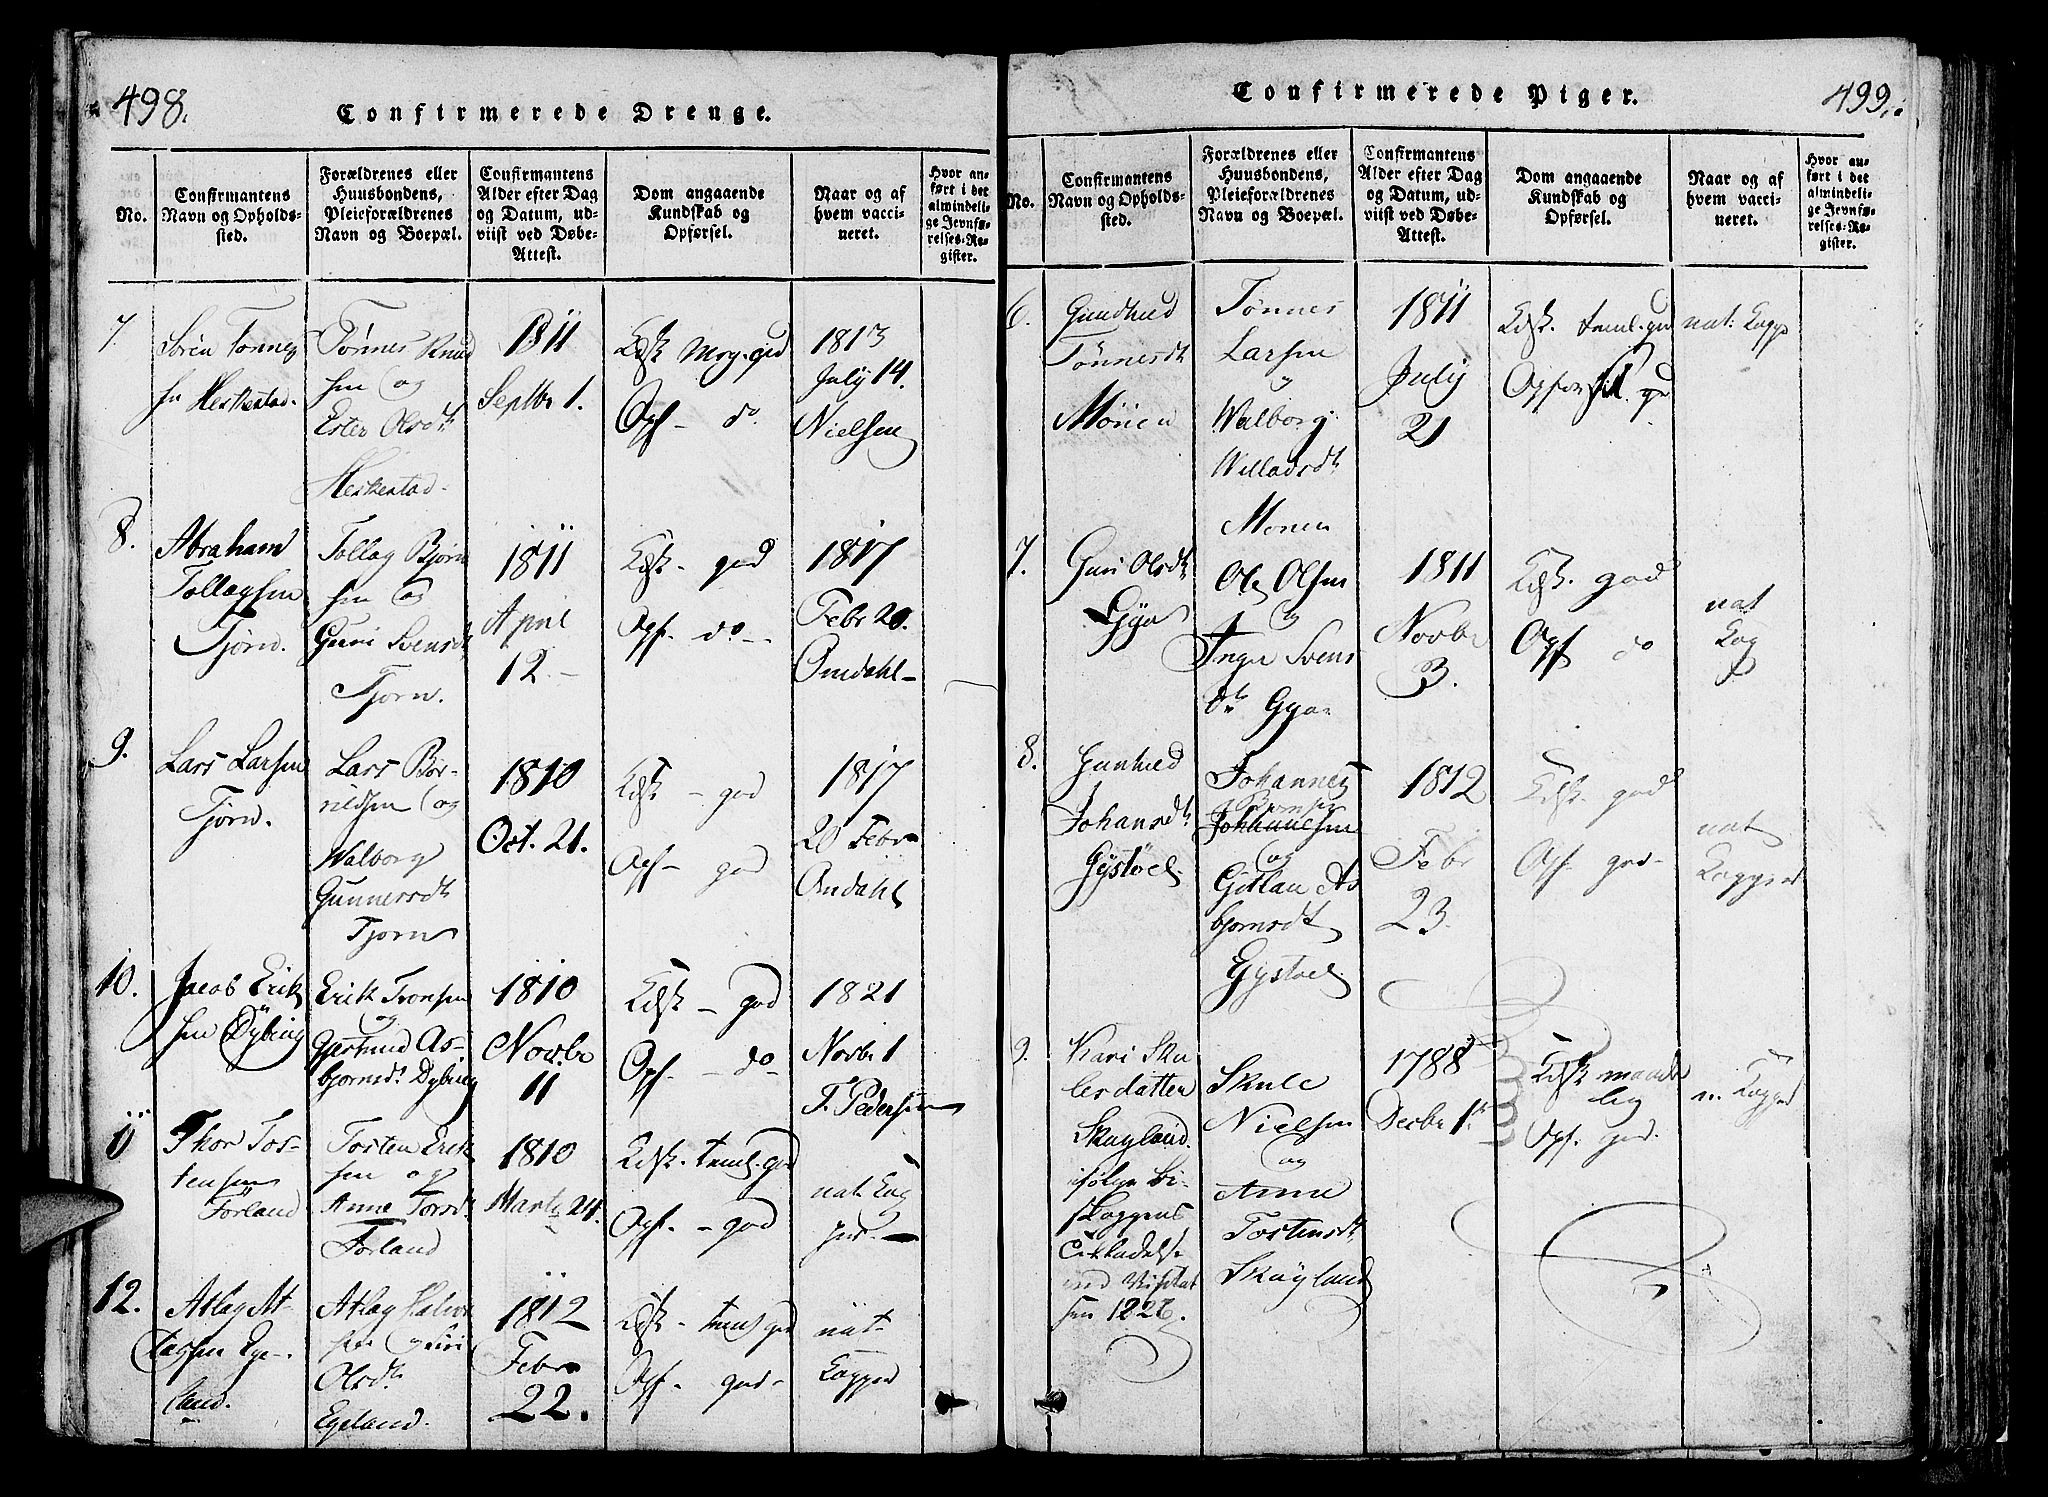 498.
Confirmerede Drenge.
No.
Confirmantens
Navn og Opholds-
sted.
Forældrenes eller
Huusbondens,
Pleieforældrenes
Navn og Boepæl.
Confirmantens
Alder efter Dag
og Datum, ud-
viist ved Døbe-
Attest.
Dom angaaende
Kundskab og
Opførsel.
Naar og af
hvem vacci-
neret.
Hvor an-
ført i det
almindeli-
ge Jevnfø-
relses-Re-
gister.
7.
Sören Tönnes
sn Heskestad.
Tönnes Knud
sen og
Ester Olsdt
Heskestad.
1811
Septbr 1.
Kdsk Mg. god
Opf - do
1813
July 14.
Nielsen
8.
Abraham
Tollagsen
Tjörn.
Tollag Björn
sen og
Guri Svensdt
Tjörn.
1811
April
12.-
Kdsk - god
Opf. do --
1817
Febr 20.
Omdahl-
9.
Lars Larsen
Tjörn.
Lars Bor-
rildsen og
Walborg
Gunnersdt
Tjorn
1810
Oct. 21.
Kdsk - god
Opf - god
1817
20 Febr
Omdahl
10.
Jacob Erik
sen Dybing
Erik Tronsen
og
Gjertrud As-
bjornsdt Dybing
1810
Novbr
11
Kdsk - god
Opf - do
1821
Novbr 1
T. Pedersen
11
Thor Tos-
tensen
Förland
Tosten Erik
sen og
Anne Torsdt
Forland
1810
Marts 24.
Kdsk. taml. god
Opf. - god
nat.
12.
Atlag At-
lagsen Ege-
land.
Atlag Halvor
sen og Siri
Olsdt
Egeland.
1812
Febr
22.
Kdsk - taml god
Opf - god-
nat
Kopper
499.
Confirmerede Piger.
No.
Confirmantens
Navn og Opholds-
sted.
Forældrenes eller
Huusbondens,
Pleieforældrenes
Navn og Boepæl.
Confirmantens
Alder efter Dag
og Datum, ud-
viist ved Døbe-
Attest.
Dom angaaende
Kundskab og
Opførsel.
Naar og af
hvem vacci-
neret.
Hvor an-
ført i det
almindeli-
ge Jevnfø-
relses-Re-
gister.
6.
Gundhild
Tönnesdt
Mönen
Tønnes
Larsen
og
Walborg
Willadsdt
Monen
1811
July
21
Kdsk. taml. god
Opførsel god
nat: Kopp
7.
Guri Olsdt
Gya
Ole Olsen
og
Inger Svens
dtr Gya
1811
Novbr
3.
Kdsk. god
Opf do
nat
Kop
8.
Gunhild
Johansdt
Gystöel
Johannes
Johannesen
og
Gitlau As
bjornsdt
Gystoel
1812
Febr
23.
Kdsk. god
Opf. god-
nat
Kopper
9.
Kari Sku
lesdatter
Skayland
ifölge Bi-
skoppens
Tilladelse
ved Visitat
sen 1826.
Skule
Nielsen
og
Anne
Tostensdt
Skayland
1788
Decbr 1
Kdsk maade
lig
Opf. god.
n. Kopper